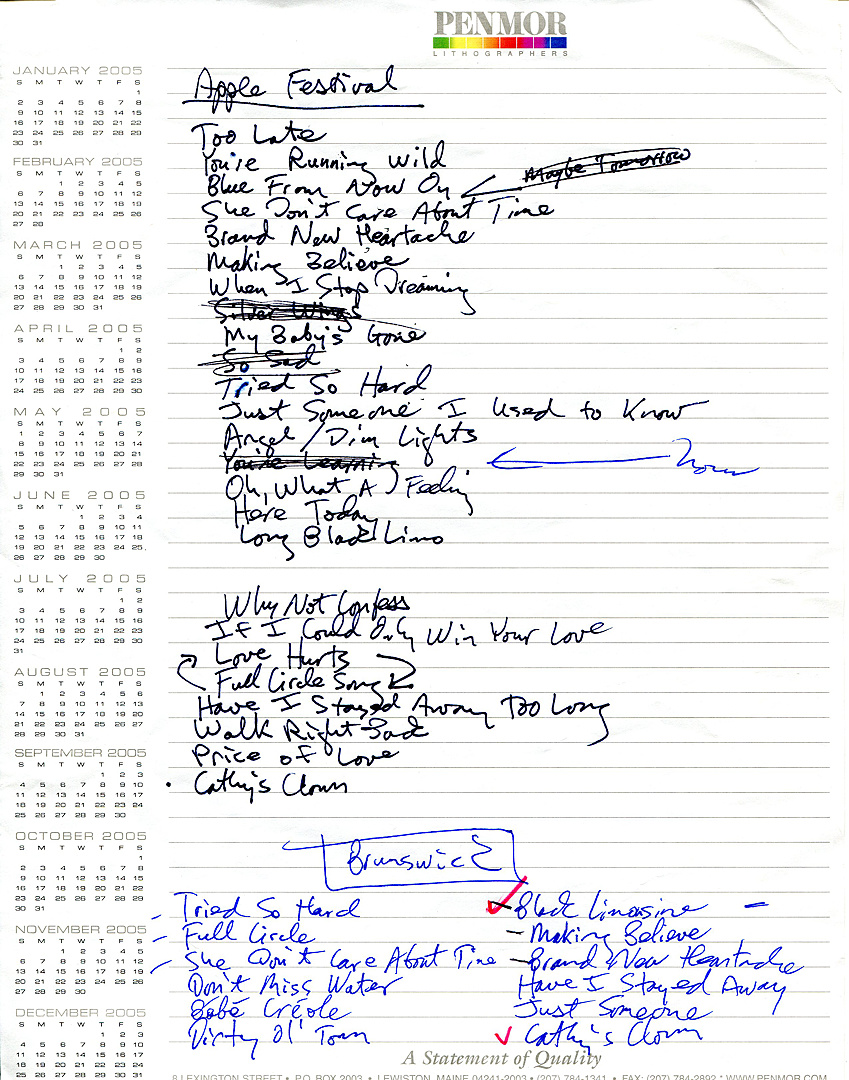 PENMOR
LITHOGRAPHERS
JANUARY 2005
S M T W T F S
1
2 3 4 5 6 7 8
9 10 11 12 13 14 15
16 17 18 19 20 21 22
23 24 25 26 27 28 29
30 31
FEBRUARY 2005
S M T W T F S
1 2 3 4 5
6 7 8 9 10 11 12
13 14 15 16 17 18 19
20 21 22 23 24 25 26
27 28
MARCH 2005
S M T W T F S
1 2 3 4 5
6 7 8 9 10 11 12
13 14 15 16 17 18 19
20 21 22 23 24 25 26
27 28 29 30 31
APRIL 2005
S M T W T F S
1 2
3 4 5 6 7 8 9
10 11 12 13 14 15 16
17 18 19 20 21 22 23
24 25 26 27 28 29 30
MAY 2005
S M T W T F S
1 2 3 4 5 6 7
8 9 10 11 12 13 14
15 16 17 18 19 20 21
22 23 24 25 26 27 28
29 30 31
JUNE 2005
S M T W T F S
1 2 3 4
5 6 7 8 9 10 11
12 13 14 15 16 17 18
19 20 21 22 23 24 25
26 27 28 29 30
JULY 2005
S M T W T F S
1 2
3 4 5 6 7 8 9
10 11 12 13 14 15 16
17 18 19 20 21 22 23
24 25 26 27 28 29 30
31
AUGUST 2005
S M T W T F S
1 2 3 4 5 6
7 8 9 10 11 12 13
14 15 16 17 18 19 20
21 22 23 24 25 26 27
28 29 30 31
SEPTEMBER 2005
S M T W T F S
1 2 3
4 5 6 7 8 9 10
11 12 13 14 15 16 17
18 19 20 21 22 23 24
25 26 27 28 29 30
OCTOBER 2005
S M T W T F S
1
2 3 4 5 6 7 8
9 10 11 12 13 14 15
16 17 18 19 20 21 22
23 24 25 26 27 28 29
30 31
NOVEMBER 2005
S M T W T F S
1 2 3 4 5
6 7 8 9 10 11 12
13 14 15 16 17 18 19
20 21 22 23 24 25 26
27 28 29 30
DECEMBER 2005
S M T W T F S
1 2 3
4 5 6 7 8 9 10
11 12 13 14 15 16 17
18 19 20 21 22 23 24
25 26 27 28 29 30 31
Apple Festival
Too Late
You're Running Wild
Maybe Tomorrow
Blue From Now On
She Don't Care About Time
Brand New Heartache
Making Believe
When I Stop Dreaming
Silver Wings
My Baby's Gone
So Sad
Tried So Hard
Just Someone I Used to Know
Angel / Dim Lights
You're Learning
Oh, What A Feeling
Here Today
Long Black Limo
Why Not Confess
If I Could Only Win Your Love
Love Hurts
Full Circle Song
Have I Stayed Away Too Long
Walk Right Back
Price of Love
• Cathy's Clown
Brunswick
Tried So Hard
Full Circle
She Don't Care About Time
Don't Miss Water
Bébé Créole
Dirty Ol' Town
Black Limosine
Making Believe
Brand New Heartache
Have I Stayed Away
Just Someone
Cathy's Clown
A Statement of Quality
8 LEXINGTON STREET • P.O. BOX 2003 • LEWISTON, MAINE 04241-2003 • (207) 784-1341 • FAX: (207) 784-2892 * WWW.PENMOR.COM